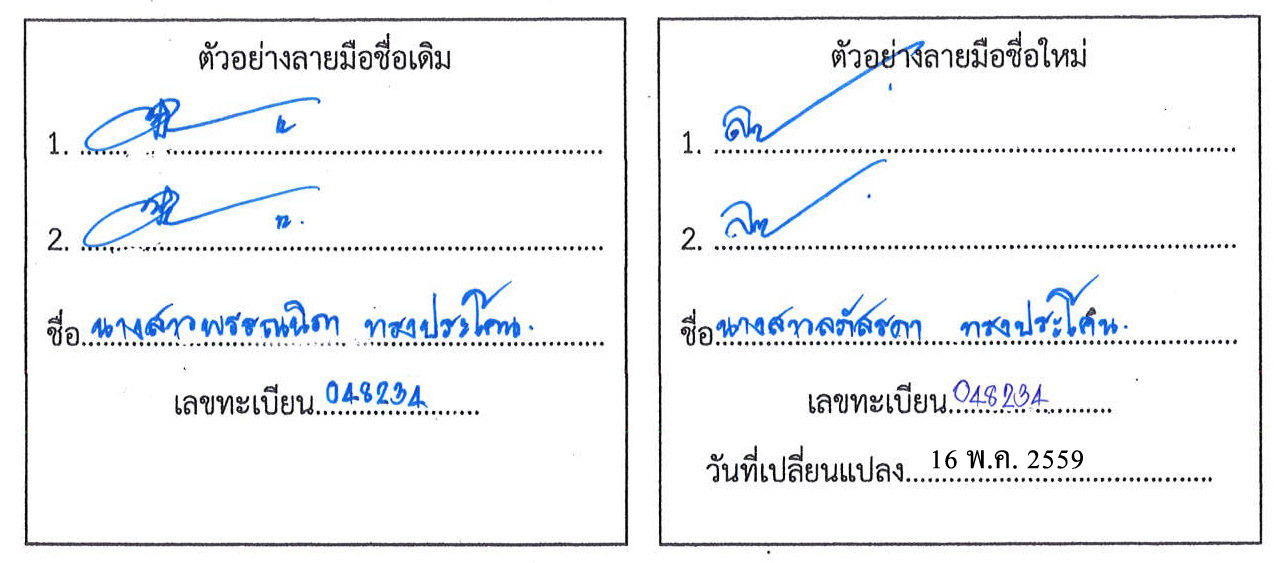 ตัวอย่างลายมือชื่อเดิม
1.
2.
ชื่อ นางสาวพรรณนิภา ทรงประโคน.
เลขทะเบียน 048234
ตัวอย่างลายมือชื่อใหม่
1.
2.
ชื่อ นางสาวลภัสรดา ทรงประโคน.
เลขทะเบียน 048234
วันที่เปลี่ยนแปลง 16 พ.ค. 2559